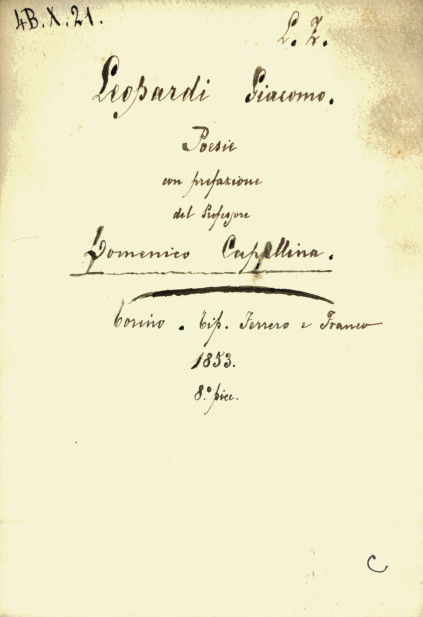 4B.X.21.
L. Z.
Leopardi Giacomo.
Poesie
con prefazione
del Professore
Domenico Cappellina.
Torino. Tip. Ferrero e Franco
1853.
8.° picc.
C